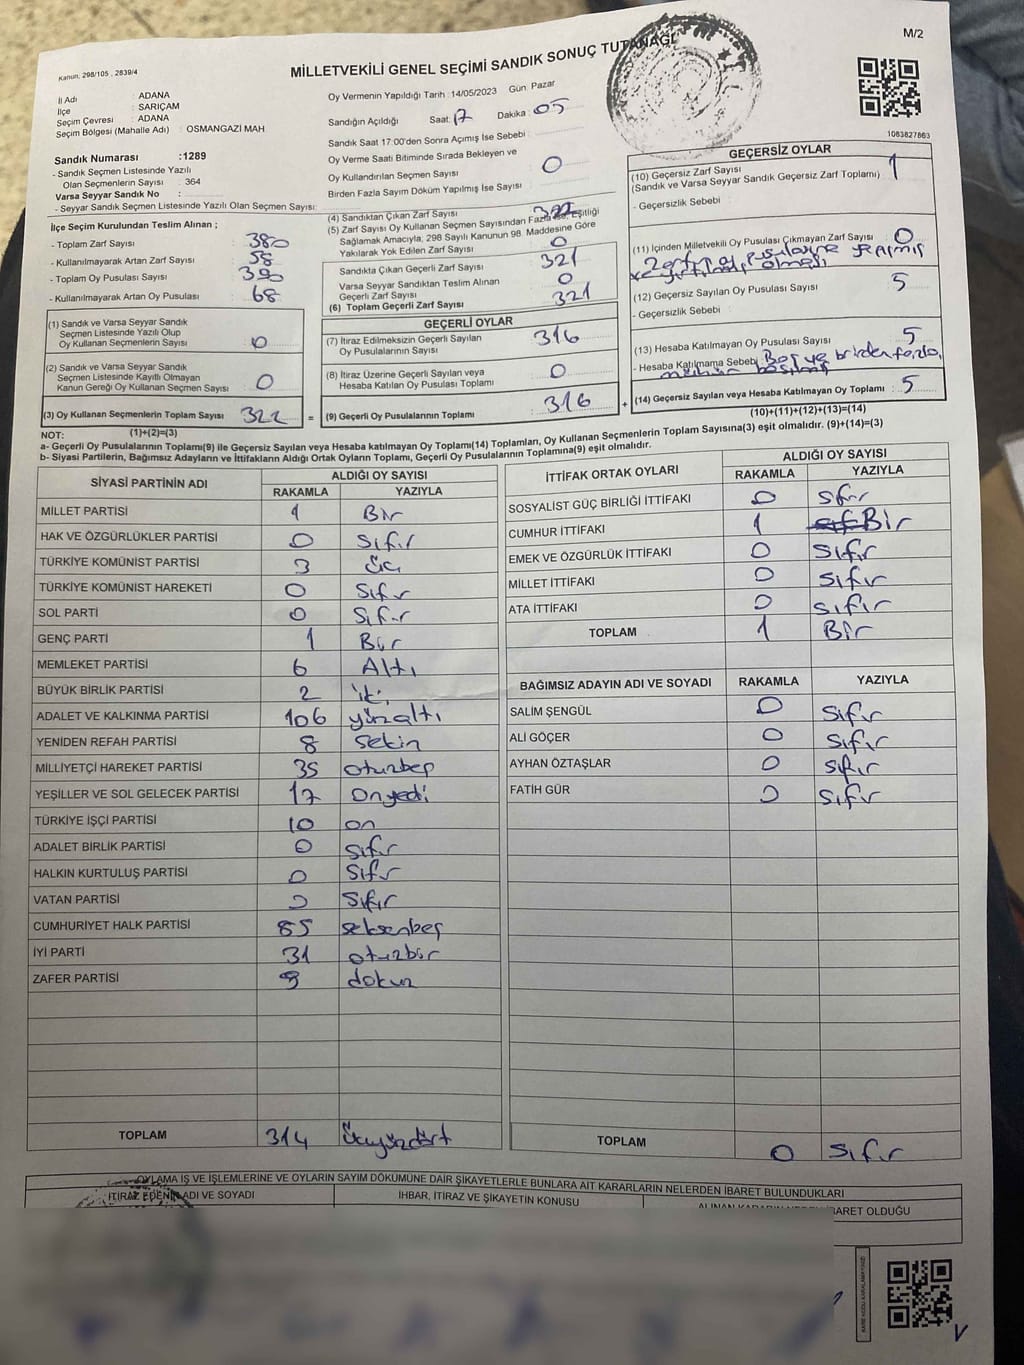 M/2
Kanun, 298/105 , 2839/4
MİLLETVEKİLİ GENEL SEÇİMİ SANDIK SONUÇ TUTANAĞI
İl Adı : ADANA
İlçe : SARIÇAM
Seçim Çevresi : ADANA
Seçim Bölgesi (Mahalle Adı) : OSMANGAZİ MAH
Sandık Numarası :1289
- Sandık Seçmen Listesinde Yazılı
Olan Seçmenlerin Sayısı : 364
Varsa Seyyar Sandık No :
- Seyyar Sandık Seçmen Listesinde Yazılı Olan Seçmen Sayısı:
Oy Vermenin Yapıldığı Tarih :14/05/2023 Gün: Pazar
Sandığın Açıldığı Saat: 17 Dakika : 05
Sandık Saat 17:00'den Sonra Açımış İse Sebebi :
Oy Verme Saati Bitiminde Sırada Bekleyen ve
Oy Kullandırılan Seçmen Sayısı 0
Birden Fazla Sayım Döküm Yapılmış İse Sayısı :
1083827863
İlçe Seçim Kurulundan Teslim Alınan ;
- Toplam Zarf Sayısı : 380
- Kullanılmayarak Artan Zarf Sayısı : 58
- Toplam Oy Pusulası Sayısı : 390
- Kullanılmayarak Artan Oy Pusulası : 68
(1) Sandık ve Varsa Seyyar Sandık
Seçmen Listesinde Yazılı Olup
Oy Kullanan Seçmenlerin Sayısı : 0
(2) Sandık ve Varsa Seyyar Sandık
Seçmen Listesinde Kayıtlı Olmayan
Kanun Gereği Oy Kullanan Seçmen Sayısı : 0
(3) Oy Kullanan Seçmenlerin Toplam Sayısı 322 =
(4) Sandıktan Çıkan Zarf Sayısı : 322
(5) Zarf Sayısı Oy Kullanan Seçmen Sayısından Fazla İse, Eşitliği
Sağlamak Amacıyla, 298 Sayılı Kanunun 98. Maddesine Göre
Yakılarak Yok Edilen Zarf Sayısı : 0
Sandıkta Çıkan Geçerli Zarf Sayısı : 321
Varsa Seyyar Sandıktan Teslim Alınan
Geçerli Zarf Sayısı : 0
(6) Toplam Geçerli Zarf Sayısı : 321
GEÇERLİ OYLAR
(7) İtiraz Edilmeksizin Geçerli Sayılan
Oy Pusulalarının Sayısı : 316
(8) İtiraz Üzerine Geçerli Sayılan veya
Hesaba Katılan Oy Pusulası Toplamı : 0
(9) Geçerli Oy Pusulalarının Toplamı : 316 +
GEÇERSİZ OYLAR
(10) Geçersiz Zarf Sayısı : 1
(Sandık ve Varsa Seyyar Sandık Geçersiz Zarf Toplamı)
- Geçersizlik Sebebi :
(11) İçinden Milletvekili Oy Pusulası Çıkmayan Zarf Sayısı : 0
Zarfın oy pusulasına yapışmış
ve yırtılmış olması
(12) Geçersiz Sayılan Oy Pusulası Sayısı : 5
- Geçersizlik Sebebi :
(13) Hesaba Katılmayan Oy Pusulası Sayısı : 5
- Hesaba Katılmama Sebebi : Boş ve birden fazla
mühür basılmış
(14) Geçersiz Sayılan veya Hesaba Katılmayan Oy Toplamı : 5
(10)+(11)+(12)+(13)=(14)
NOT: (1)+(2)=(3)
a- Geçerli Oy Pusulalarının Toplamı(9) ile Geçersiz Sayılan veya Hesaba katılmayan Oy Toplamı(14) Toplamları, Oy Kullanan Seçmenlerin Toplam Sayısına(3) eşit olmalıdır. (9)+(14)=(3)
b- Siyasi Partilerin, Bağımsız Adayların ve İttifakların Aldığı Ortak Oyların Toplamı, Geçerli Oy Pusulalarının Toplamına(9) eşit olmalıdır.
SİYASİ PARTİNİN ADI ALDIĞI OY SAYISI
RAKAMLA YAZIYLA
MİLLET PARTİSİ 1 Bir
HAK VE ÖZGÜRLÜKLER PARTİSİ 0 Sıfır
TÜRKİYE KOMÜNİST PARTİSİ 3 üç
TÜRKİYE KOMÜNİST HAREKETİ 0 Sıfır
SOL PARTİ 0 Sıfır
GENÇ PARTİ 1 Bir
MEMLEKET PARTİSİ 6 Altı
BÜYÜK BİRLİK PARTİSİ 2 iki
ADALET VE KALKINMA PARTİSİ 106 yüzaltı
YENİDEN REFAH PARTİSİ 8 sekiz
MİLLİYETÇİ HAREKET PARTİSİ 35 otuzbeş
YEŞİLLER VE SOL GELECEK PARTİSİ 17 Onyedi
TÜRKİYE İŞÇİ PARTİSİ 10 on
ADALET BİRLİK PARTİSİ 0 sıfır
HALKIN KURTULUŞ PARTİSİ 0 Sıfır
VATAN PARTİSİ 0 Sıfır
CUMHURİYET HALK PARTİSİ 85 seksenbeş
İYİ PARTİ 31 otuzbir
ZAFER PARTİSİ 9 dokuz
TOPLAM 314 üçyüzdört
İTTİFAK ORTAK OYLARI ALDIĞI OY SAYISI
RAKAMLA YAZIYLA
SOSYALİST GÜÇ BİRLİĞİ İTTİFAKI 0 Sıfır
CUMHUR İTTİFAKI 1 Bir
EMEK VE ÖZGÜRLÜK İTTİFAKI 0 Sıfır
MİLLET İTTİFAKI 0 Sıfır
ATA İTTİFAKI 0 sıfır
TOPLAM 1 Bir
BAĞIMSIZ ADAYIN ADI VE SOYADI RAKAMLA YAZIYLA
SALİM ŞENGÜL 0 Sıfır
ALİ GÖÇER 0 Sıfır
AYHAN ÖZTAŞLAR 0 sıfır
FATİH GÜR 0 sıfır
TOPLAM 0 sıfır
OYLAMA İŞ VE İŞLEMLERİNE VE OYLARIN SAYIM DÖKÜMÜNE DAİR ŞİKAYETLERLE BUNLARA AİT KARARLARIN NELERDEN İBARET BULUNDUKLARI
İTİRAZ EDENİN ADI VE SOYADI İHBAR, İTİRAZ VE ŞİKAYETİN KONUSU İBARET OLDUĞU
KARE KODU KARALAMAYINIZ!